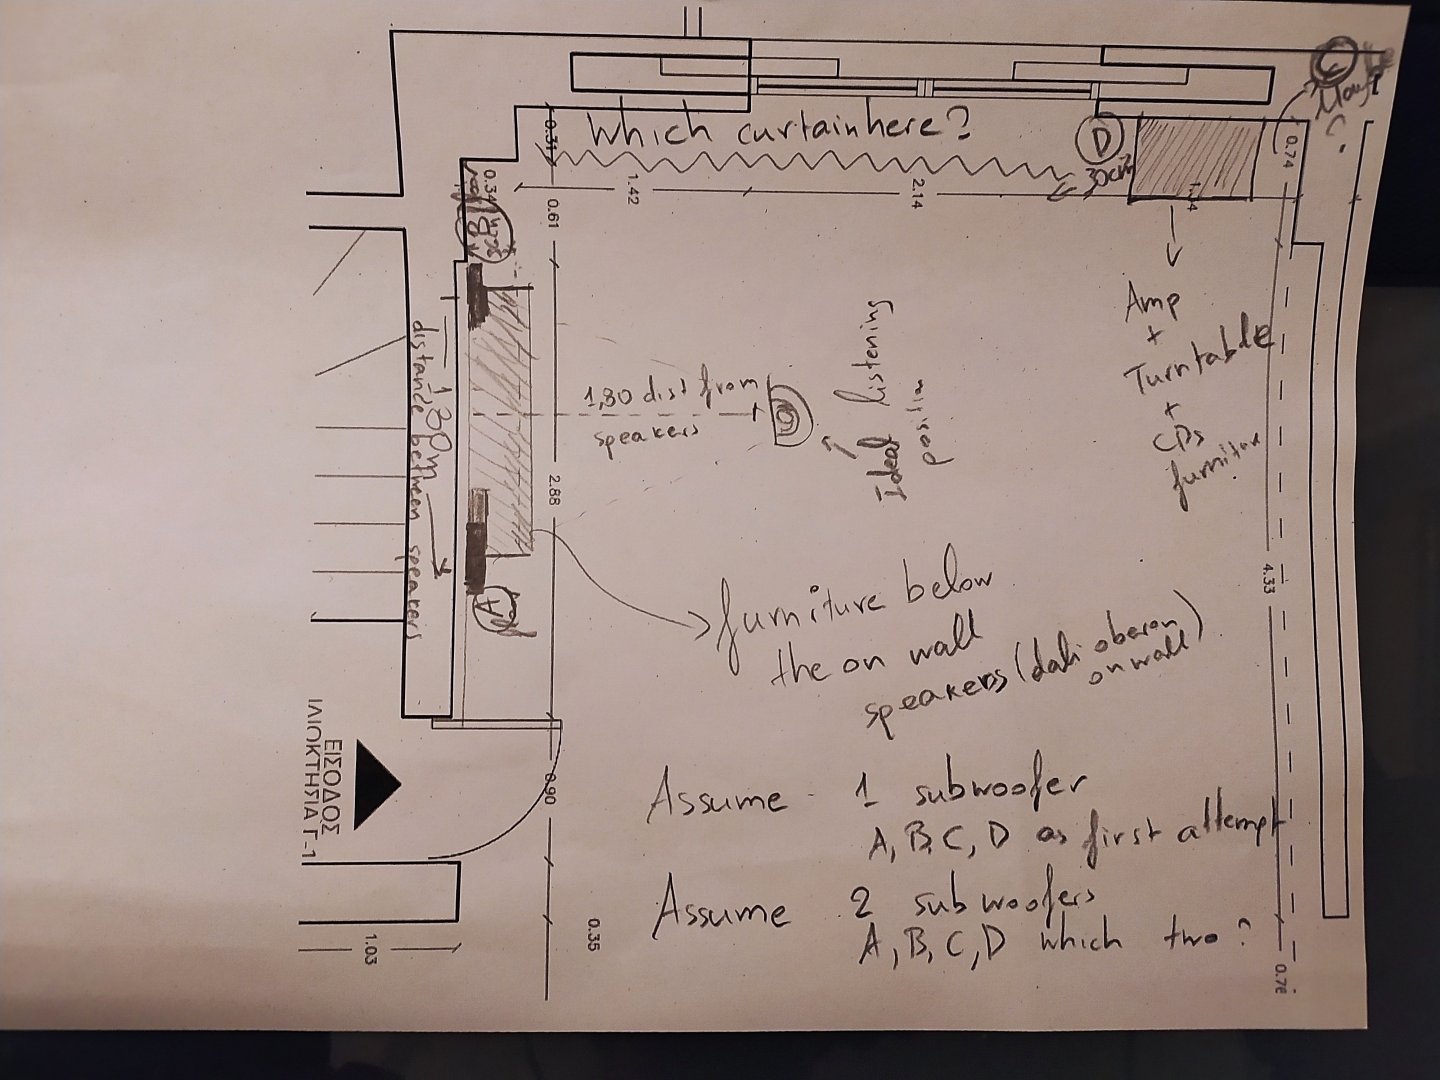 Which curtain here?
D
30cm?
C
0.31
0.34
0.61
1.42
2.14
0.74
B
1,80 dist from
speakers
Ideal listening
position
Amp
+
Turntable
+
CDs
furniture
1.80m
distance between speakers
2.88
4.33
A
furniture below
the on wall
speakers (dali oberon
on wall)
ΕΙΣΟΔΟΣ
ΙΔΙΟΚΤΗΣΙΑ Γ-1
0.90
Assume 1 subwoofer
A, B, C, D as first attempt
Assume 2 subwoofers
A, B, C, D which two?
1.03
0.35